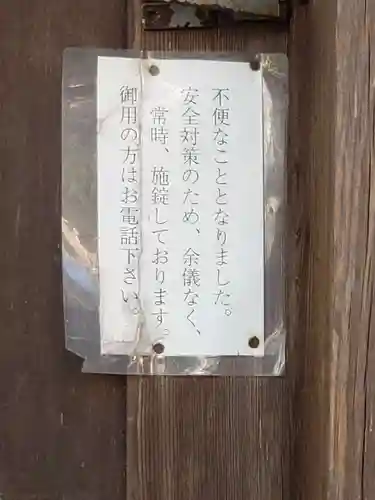 不便なこととなりました。
安全対策のため、余儀なく、
常時、施錠しております。
御用の方はお電話下さい。